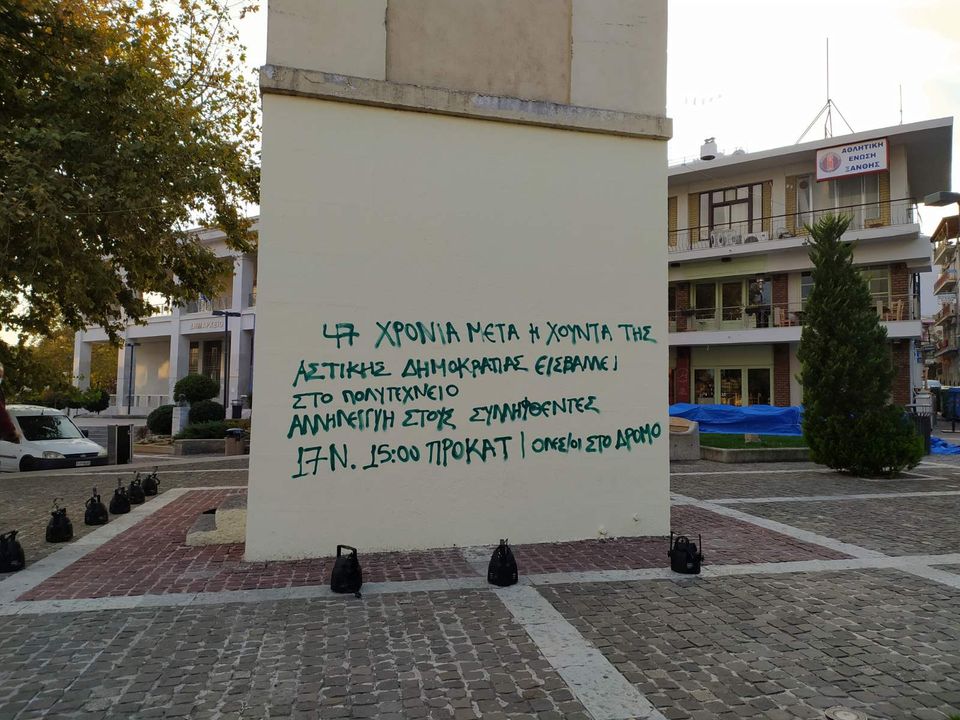 47 ΧΡΟΝΙΑ ΜΕΤΑ Η ΧΟΥΝΤΑ ΤΗΣ
ΑΣΤΙΚΗΣ ΔΗΜΟΚΡΑΤΙΑΣ ΕΙΣΒΑΛΛΕΙ
ΣΤΟ ΠΟΛΥΤΕΧΝΕΙΟ
ΑΛΛΗΛΕΓΓΥΗ ΣΤΟΥΣ ΣΥΛΛΗΦΘΕΝΤΕΣ
17Ν. 15:00 ΠΡΟΚΑΤ | ΟΛΕΣ/ΟΙ ΣΤΟ ΔΡΟΜΟ
ΑΘΛΗΤΙΚΗ
ΕΝΩΣΗ
ΞΑΝΘΗΣ
ΔΗΜΑΡΧΕΙΟ